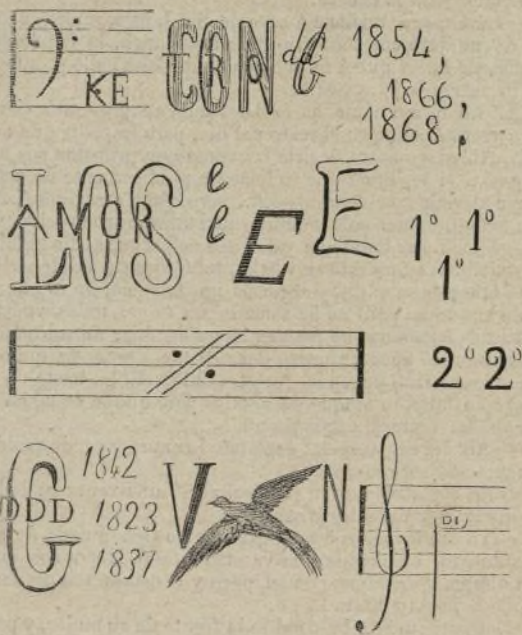 KE CON TRO dd G 1854,
1866,
1868;
LOS AMOR e e E E 1º 1º
1º
2º 2º
G DDD 1842
1823
1837
V N DI,